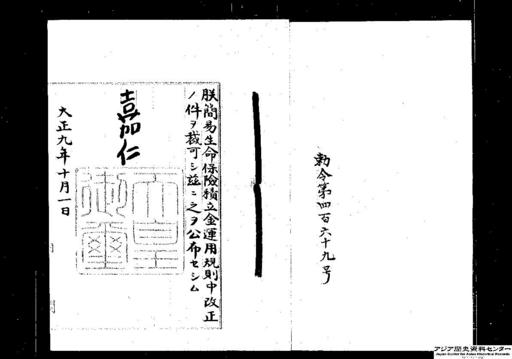 勅令第四百六十九号
朕簡易生命保険積立金運用規則中改正
ノ件ヲ裁可シ茲ニ之ヲ公布セシム
嘉仁
天皇御璽
大正九年十月一日
アジア歴史資料センター
Japan Center for Asian Historical Records